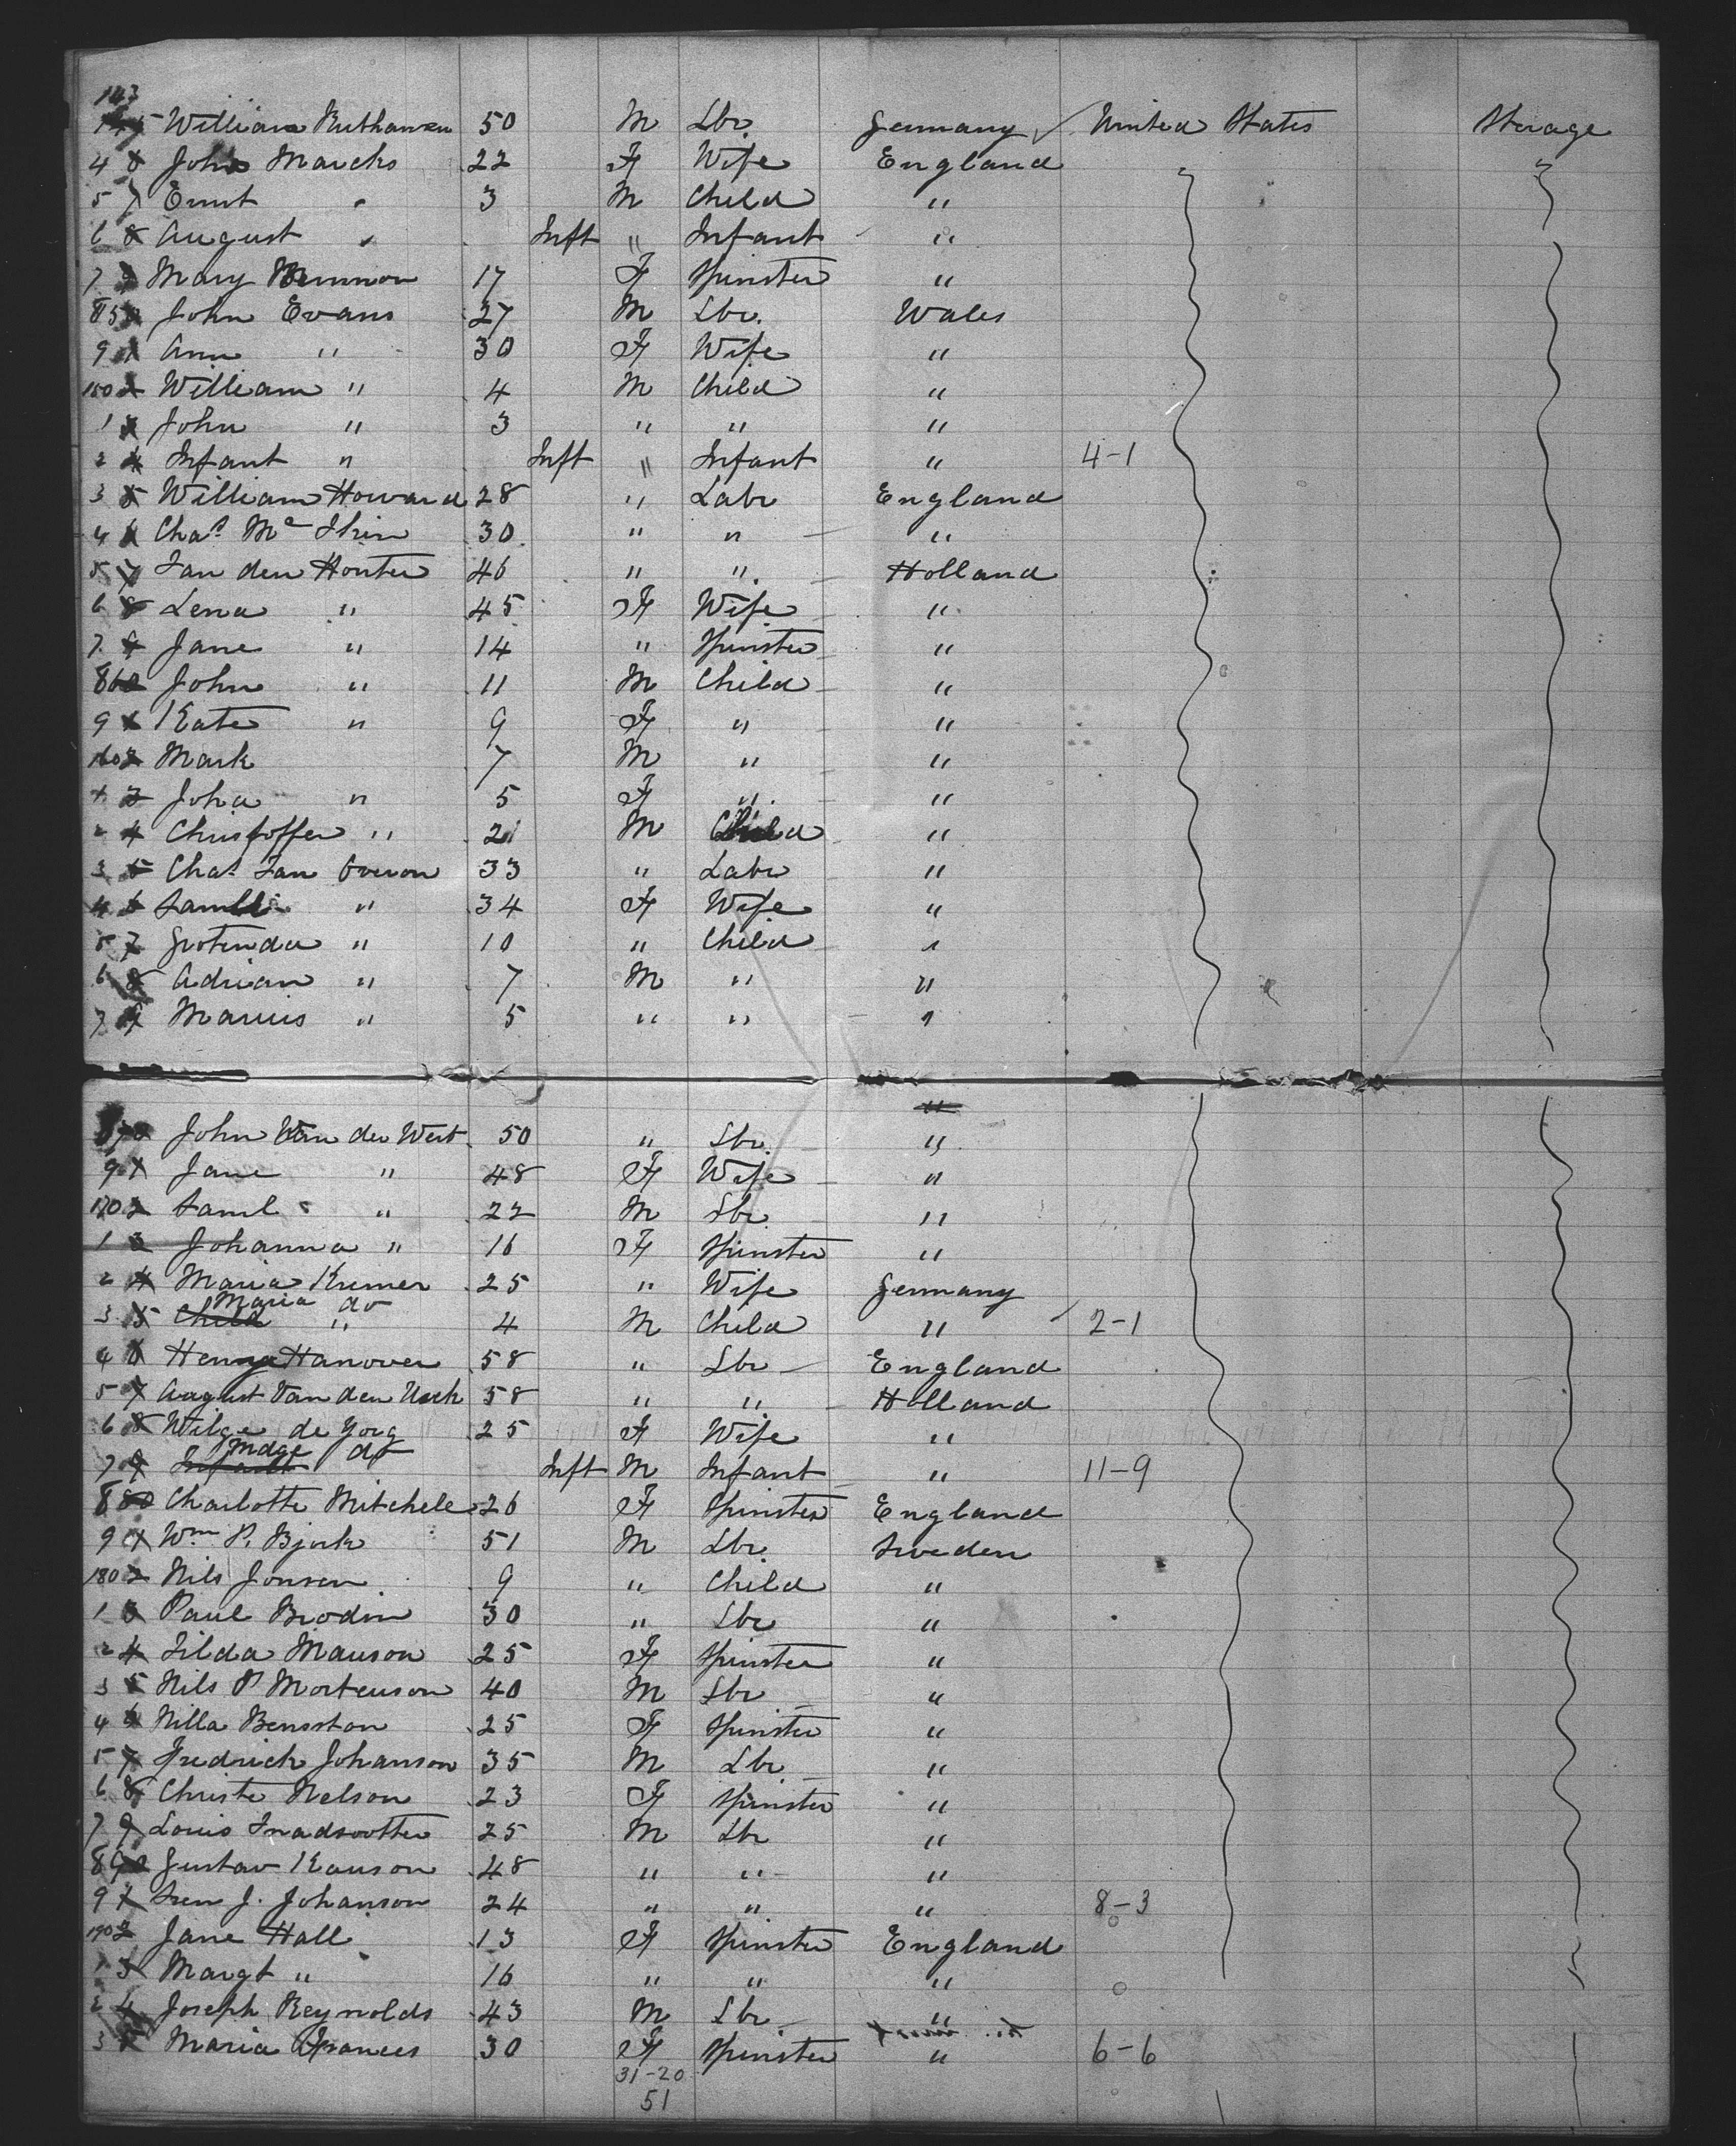 143
William Ruthanen 50 M Lbr. Germany United States Sterage
4 John Marcks 22 F Wife England
5 Ernst " 3 M Child "
6 8 August " Inft " Infant "
7 9 Mary 17 F Spinster "
8 John Evans 27 M Lbr. Wales
9 1 Ann " 30 F Wife "
150 2 William " 4 M Child "
1 3 John " 3 " " "
2 4 Infant " Inft " Infant " 4-1
3 5 William Howard 28 " Labr England
4 6 Chas. Mc 30 " " "
5 7 Van den Houter 46 " " Holland
6 8 Lena " 45 F Wife "
7 9 Jane " 14 " Spinster "
8 60 John " 11 M Child "
9 1 Kate " 9 F " "
160 2 Mark 7 M " "
1 3 Joha " 5 F " "
2 4 Christoffer " 2 M Child "
3 5 Chas. Van Overon 33 " Labr "
4 6 " 34 F Wife "
5 7 Grotenda " 10 " Child "
6 8 Adrian " 7 M " "
7 9 Marius " 5 " " "
"
8 70 John Van der West 50 " Lbr. "
9 1 Jane " 48 F Wife "
170 2 Saml " 22 M Lbr. "
1 3 Johanna " 16 F Spinster "
2 4 Maria Kremer 25 " Wife Germany
Maria do
3 5 Child " 4 M Child " 2-1
4 6 Henry Hanover 58 " Lbr England
5 7 August Van den 58 " " Holland
6 8 Wilge de Yorg 25 F Wife "
Madge do
7 9 Infant Inft M Infant " 11-9
8 80 Charlotte Mitchele 26 F Spinster England
9 1 Wm P. Bjork 51 M Lbr. Sweden
180 2 Nils Jonsen 9 " Child "
1 3 Paul Brodin 30 " Lbr "
2 4 Tilda Manson 25 F Spinster "
3 5 Nils P Mortenson 40 M Lbr "
4 6 Nilla Bensston 25 F Spinster "
5 7 Fredrick Johanson 35 M Lbr "
6 8 Christe Nelson 23 F Spinster "
7 9 Louis 25 M Lbr "
8 90 Gustav Kanson 48 " " "
9 1 Sven J. Johanson 24 " " " 8-3
190 2 Jane Hall 13 F Spinster England
1 3 Margt " 16 " " "
2 4 Joseph Reynolds 43 M Lbr "
3 5 Maria Frances 30 F Spinster " 6-6
31-20
51